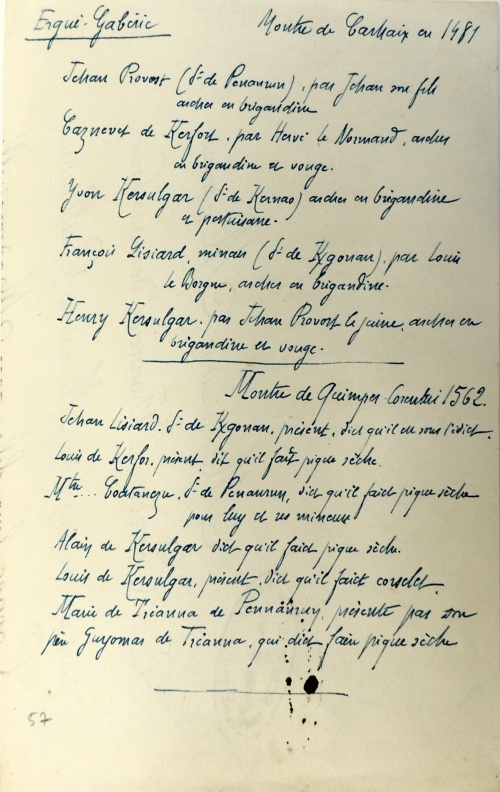 Ergué-Gabéric
Montre de Carhaix en 1481
Jehan Provost (Sr de Penanrun), par Jehan son fils
archer en brigandine
Caznevet de Kerfort, par Hervé le Normand, archer
en brigandine et vouge.
Yvon Kersulgar (Sr de Kernao) archer en brigandine
et pertuisane.
François Lisiard, mineur (Sr de K/gonan), par Louis
le Borgne, archer en brigandine.
Henry Kersulgar, par Jehan Provost le jeune, archer en
brigandine et vouge.
Montre de Quimper-Corentin 1562.
Jehan Lisiard, Sr de K/gonan, présent, dict qu'il est sous l'édict.
Louis de Kerfor, présent, dit qu'il faict pique sèche.
Mtre ... Coatanezre, Sr de Penanrun, dict qu'il faict pique sèche
pour luy et ses mineurs
Alain de Kersulgar dict qu'il faict pique sèche.
Louis de Kersulgar, présent, dict qu'il faict corselet.
Marie de Tréanna de Pennanrun, présente par son
père Guyomar de Tréanna, qui dict faire pique sèche
57